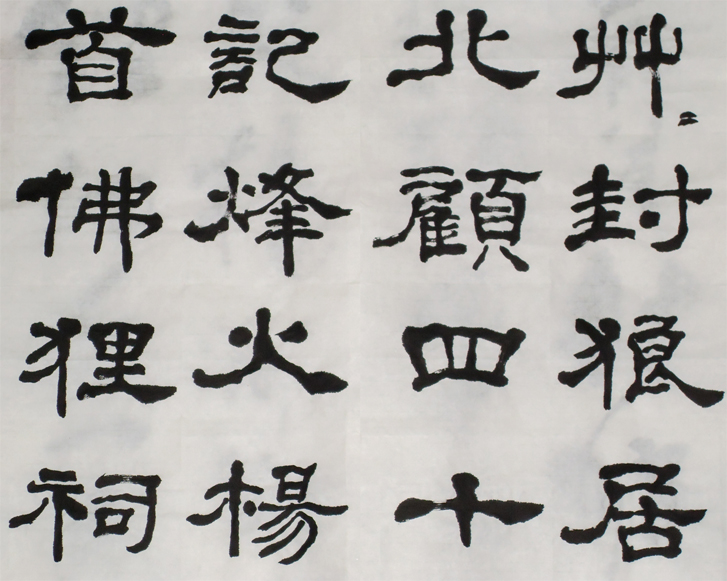 艸〻封狼居
北顧四十
記烽火楊
首佛狸祠